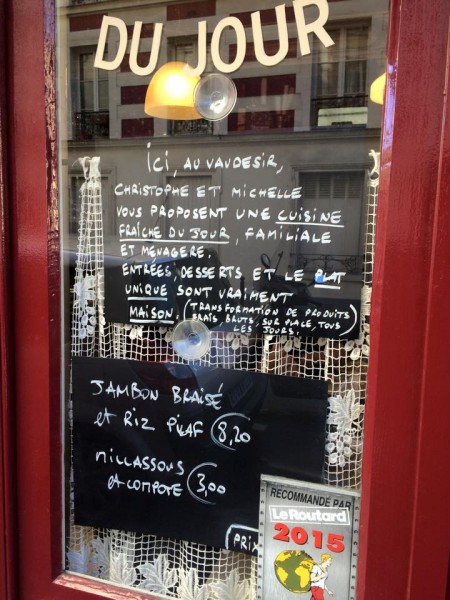 DU JOUR
ICI, AU VAUDESIR,
CHRISTOPHE ET MICHELLE
VOUS PROPOSENT UNE CUISINE
FRAÎCHE DU JOUR, FAMILIALE
ET MENAGERE.
ENTRÉES, DESSERTS ET LE PLAT
UNIQUE SONT VRAIMENT
MAISON. (TRANSFORMATION DE PRODUITS
FRAIS, BRUTS, SUR PLACE, TOUS
LES JOURS.)
JAMBON BRAISÉ
et RIZ PILAF 8,20
MILLASSOUS
et COMPOTE 3,00
PRIX
RECOMMANDÉ PAR
Le Routard
2015